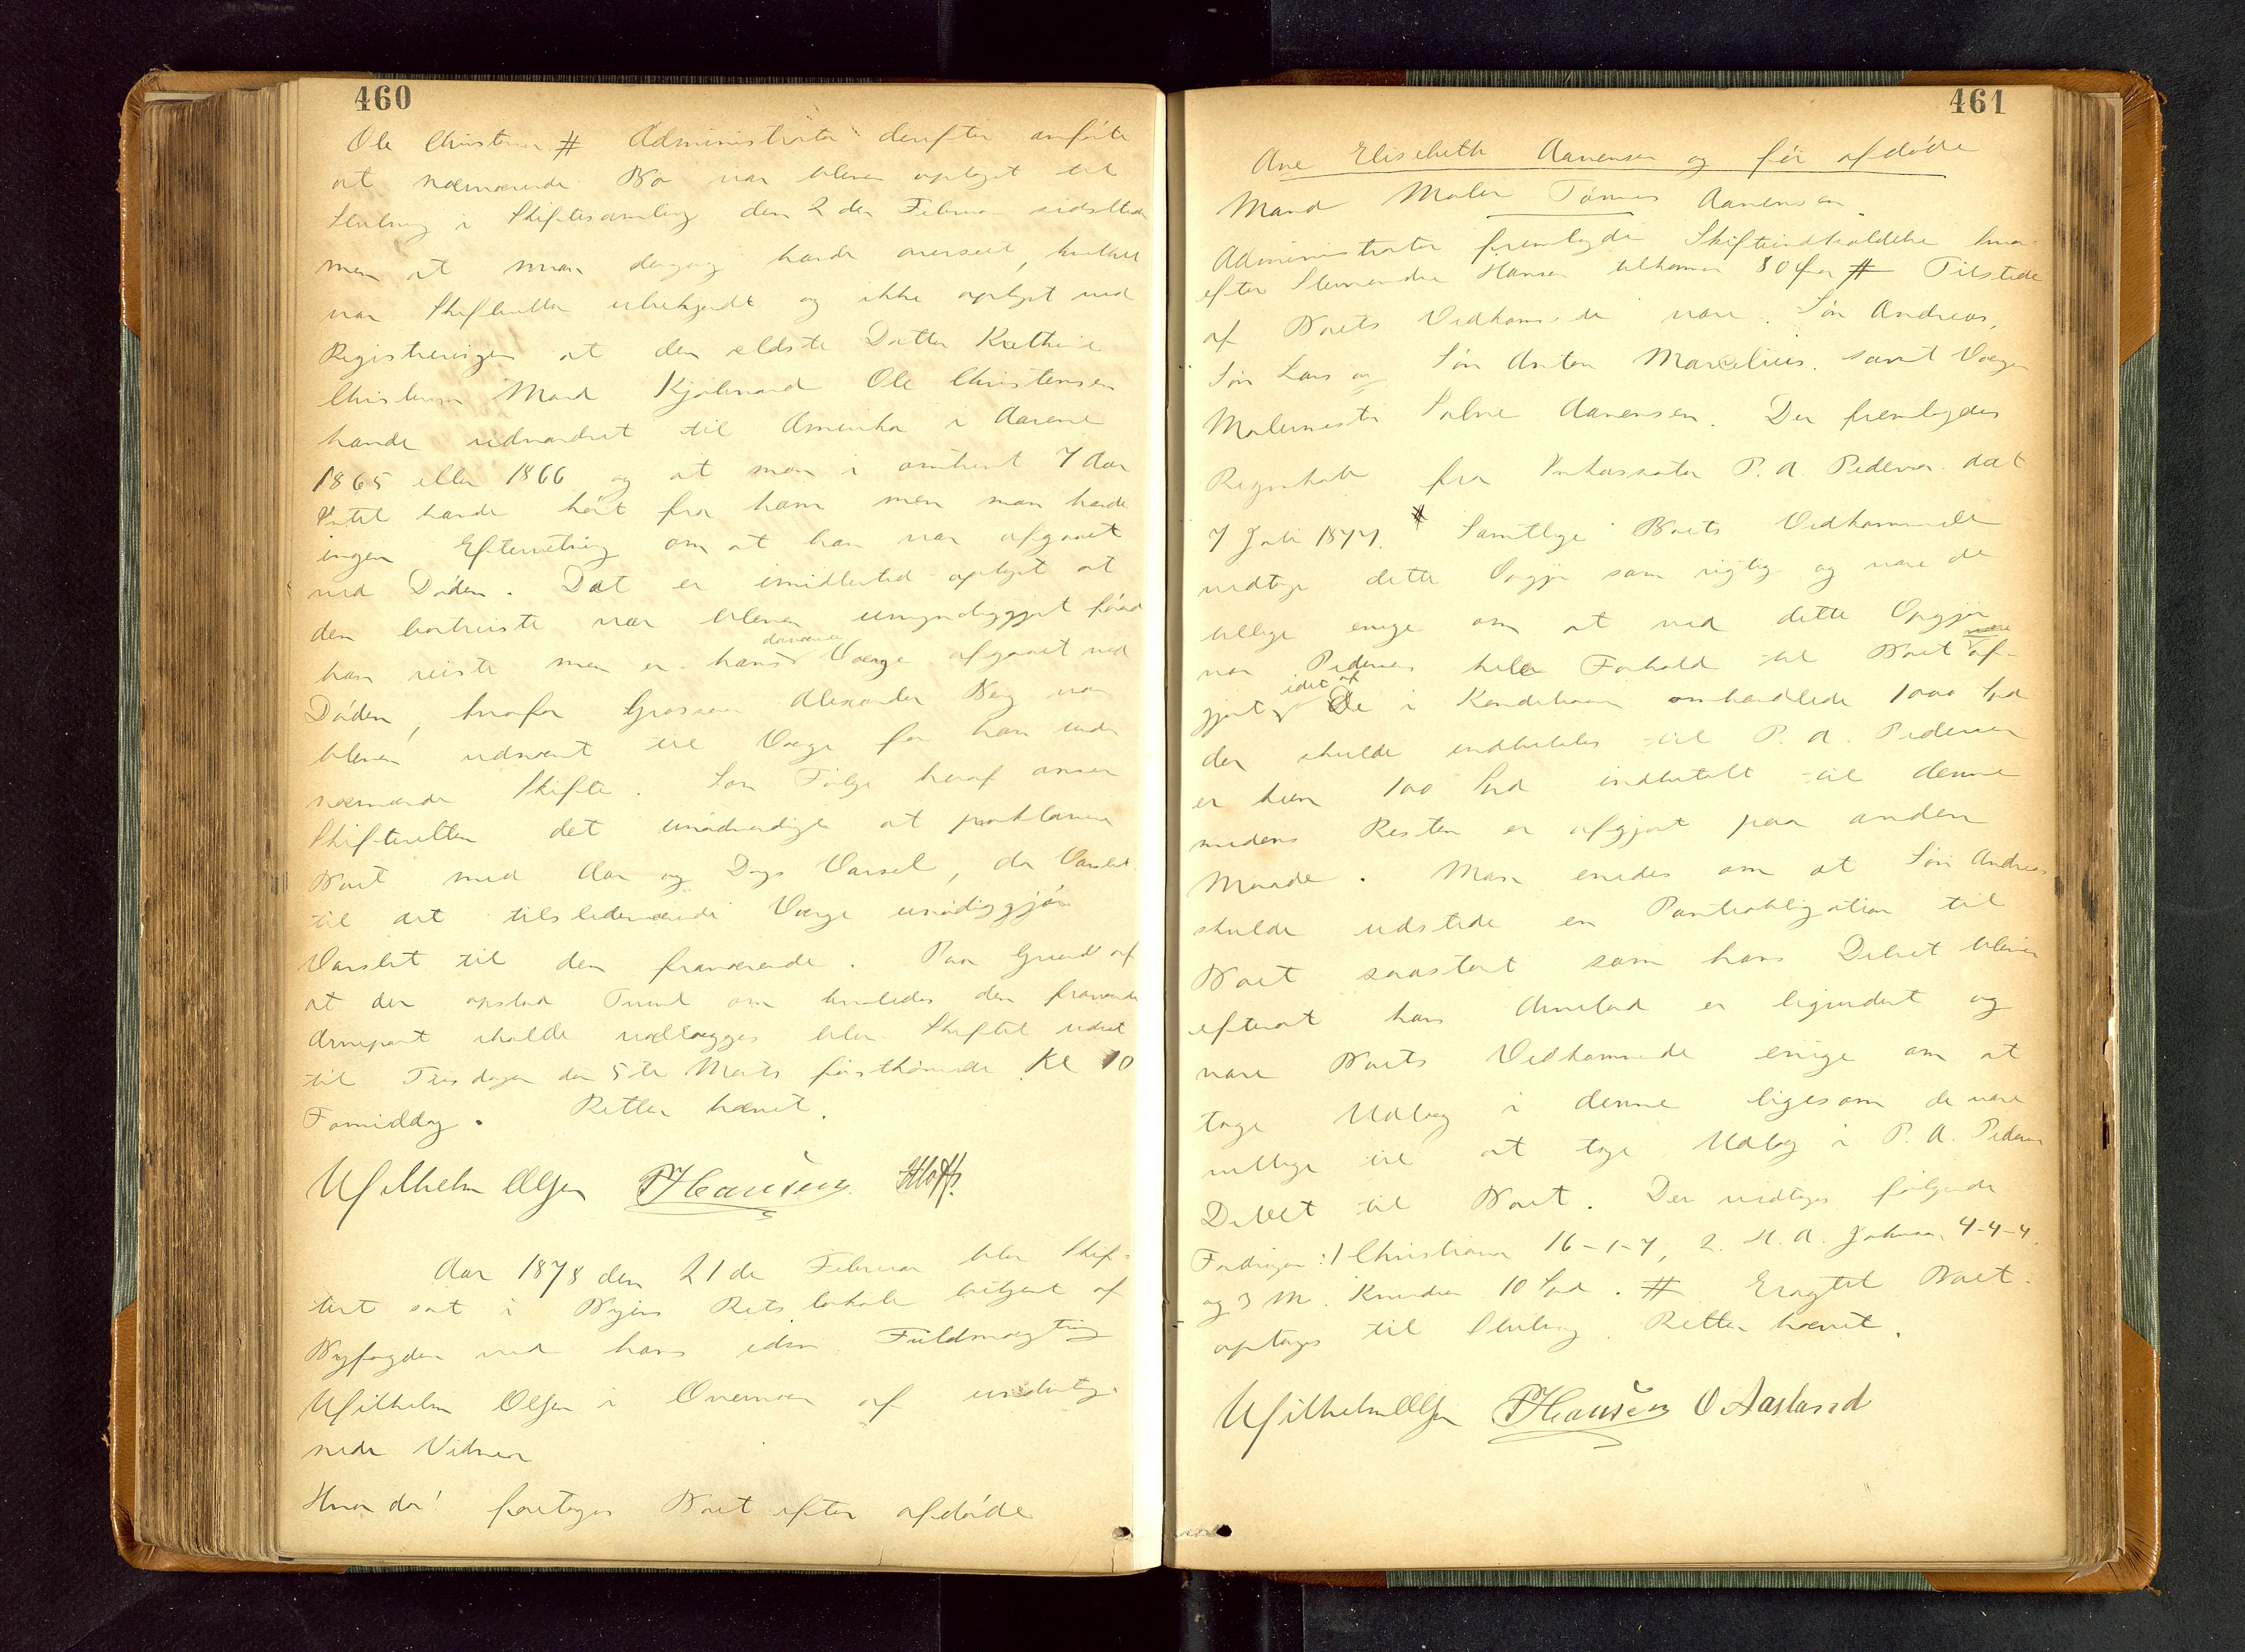 460
Ole Christensen # Administrator derefter anførte
at nærværende Bo var bleven optaget til
Slutning i Skiftesamling den 2den Februar sidstleden
men at man dengang havde overseet, hvilket
var Skifteretten ubekjendt og ikke oplyst ved
Registreringen at den ældste Datter Kathrine
Christensens Mand Kjøbmand Ole Christensen
havde udvandret til Amerika i Aarene
1865 eller 1866 og at man i omtrent 7 Aar
Intet havde hørt fra ham men man havde
ingen Efterretning om at han var afgaaet
ved Døden. Det er imidlertid oplyst at
den bortreiste var bleven umyndiggjort førend
han reiste men er hans daværende Værge afgaaet ved
Døden, hvorfor Grosserer Alexander Berg var
bleven udnævnt til Værge for ham under
nærværende Skifte. Som Følge heraf anser
Skifteretten det unødvendigt at proklamere
Boet med Aar og Dags Varsel, da Varslet
til det tilstedeværende Værge unødiggjør
Varslet til den fraværende. Paa Grund af
at der opstod Tvivl om hvorledes den fraværende
Arvepart skulde udlægges blev Skiftet udsat
til Tirsdagen den 5te Marts førstkommende Kl 10
Formiddag. Retten hævet.
Wilhelm Olsen PHansen HHoff.
Aar 1878 den 21de Februar blev Skif-
teret sat i Byens Retslokale betjent af
Byfogden ved hans edsv. Fuldmægtig
Wilhelm Olsen i Overvær af underteg-
nede Vidner
Hvor da! foretoges Boet efter afdøde
461
Ane Elisebeth Aanensen og før afdøde
Mand Maler Tønnes Aanensen.
Administrator fremlagde Skifteindkaldelse hvor-
efter Stevnevidne Hansen tilkommer 80 Øre # Tilstede
af Boets Vedkommende vare. Søn Andreas,
Søn Lars og Søn Anton Marcelius. samt Værgen
Malermester Salve Aanensen. Der fremlagdes
Regnskab fra Inkassator P. A. Pedersen dat
7 Juli 1877. # Samtlige Boets Vedkommende
vedtage dette Opgjør som rigtig og vare de
tillige enige om at ved dette Opgjør
var Pedersens hele Forhold til Boet være af-
gjort, idet af De i Kjendelsen omhandlede 1000 Spd
der skulde indbetales til P. A. Pedersen
er kun 100 Spd indbetalt til denne
medens Resten er afgjort paa anden
Maade. Man enedes om at Søn Andreas
skulde udstede en Panteobligation til
Boet saastort som hans Debet bliver
efterat hans Arvelod er ligvideret og
vare Boets Vedkommende enige om at
tage Udlæg i denne ligesom de vare
villige til at tage Udlæg i P. A. Pedersens
Debet til Boet. Der vedtages følgende
Fordringer: 1 Christiansen 16-1-7, 2. H. A. Johnsen 4-4-4.
og 3 M. Knudsen 10 Spd. # Eragtet Boet
optages til Slutning. Retten hævet.
Wilhelm Olsen PHansen O Aasland